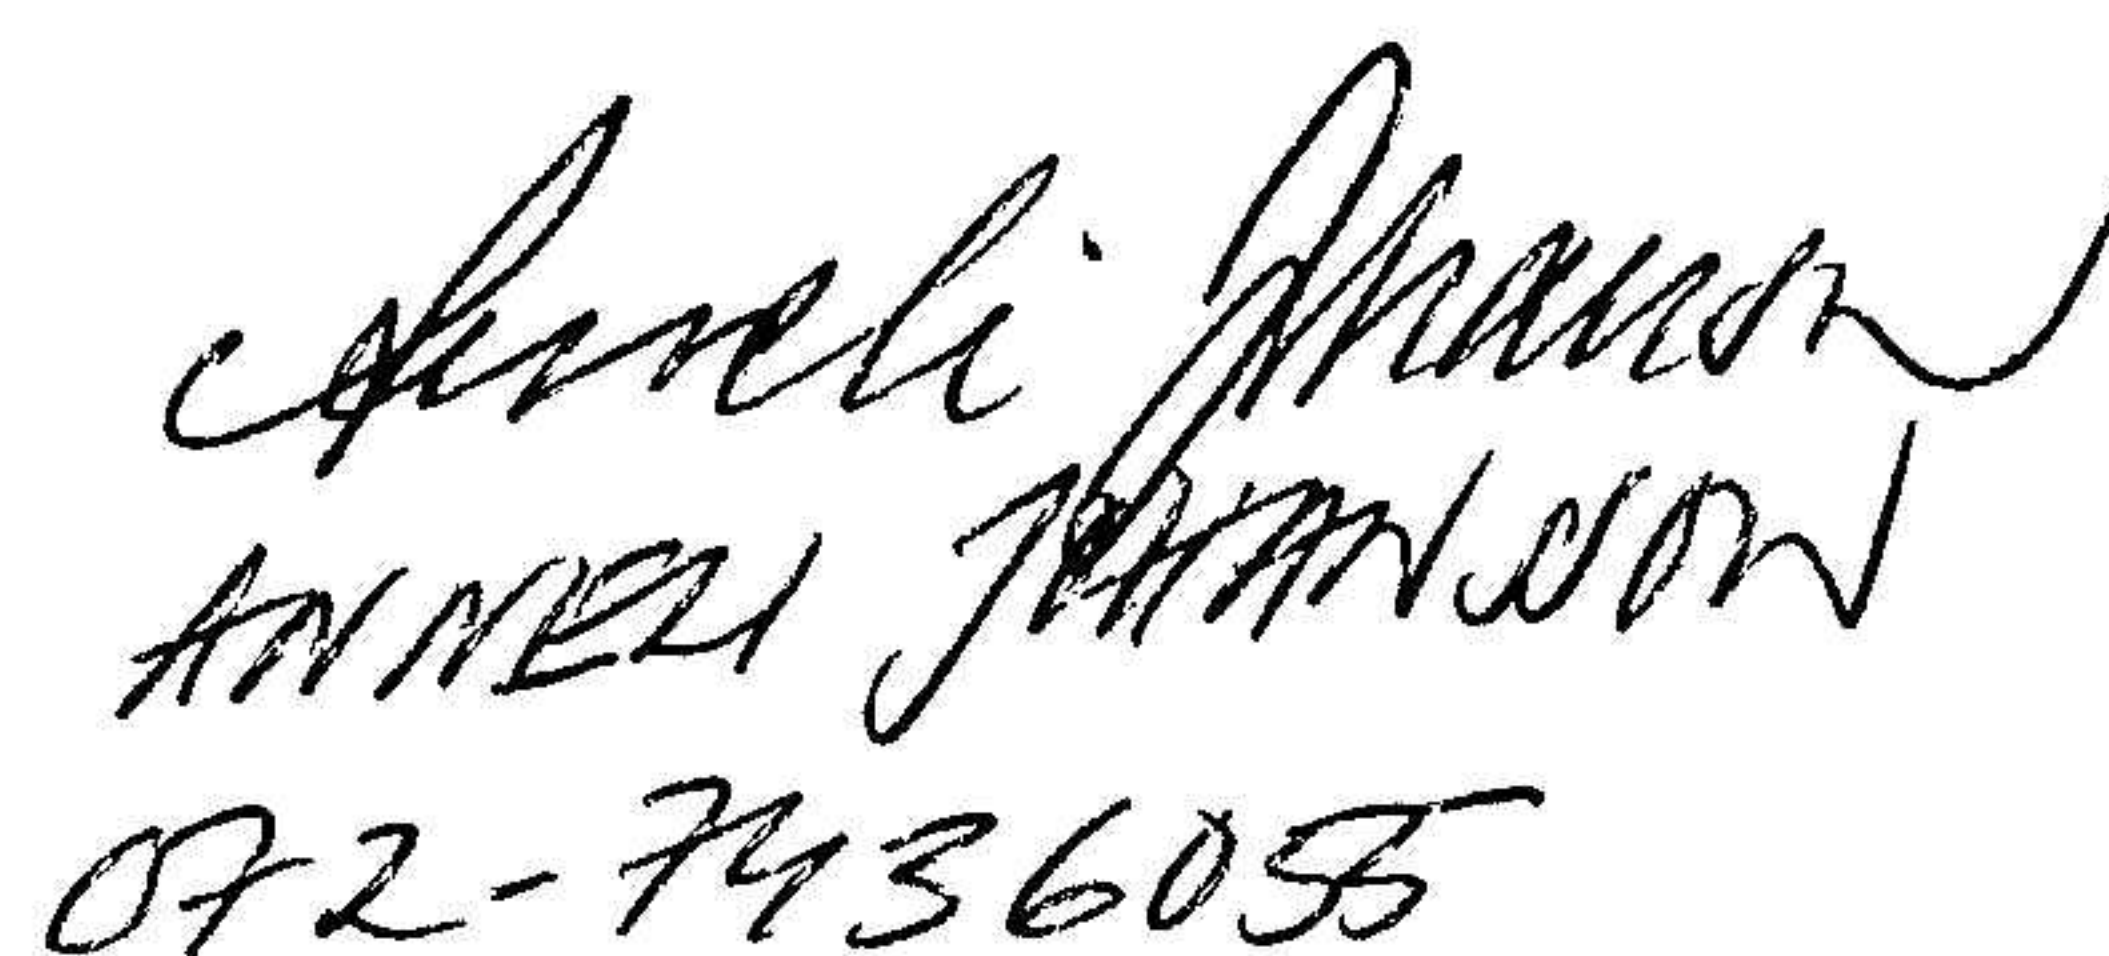 Anneli Johanson
ANNELI JOHANSON
072-7436055